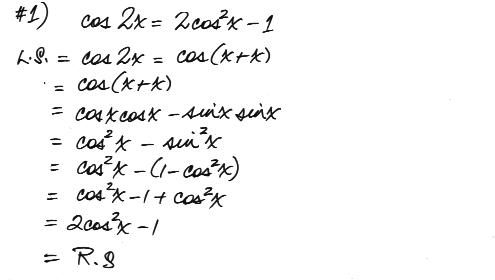 #1) cos 2x = 2cos²x - 1
L.S. = cos 2x = cos(x+x)
= cos(x+x)
= cosx cosx - sinx sinx
= cos²x - sin²x
= cos²x - (1-cos²x)
= cos²x - 1 + cos²x
= 2cos²x - 1
= R.S